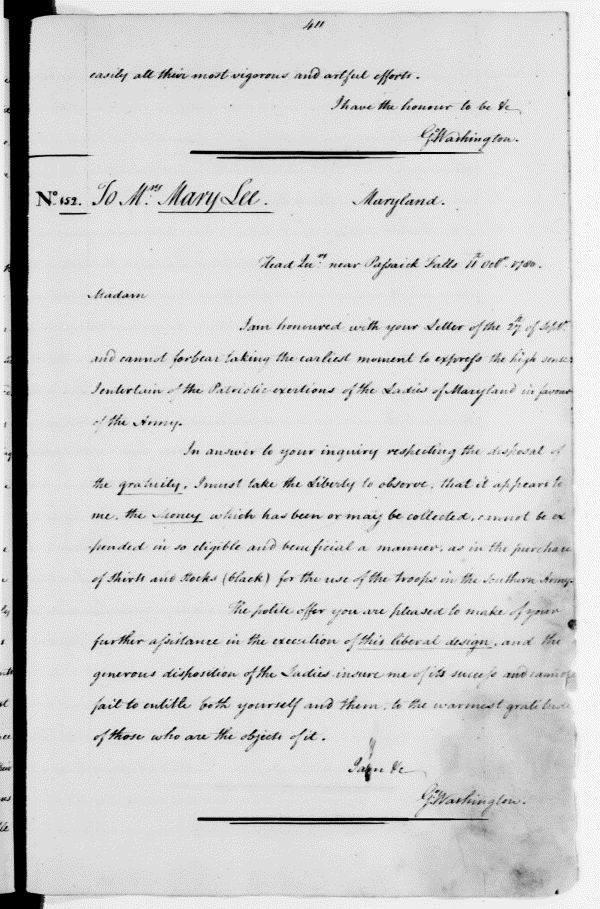 411
easily all their most vigorous and artful efforts.
I have the honour to be &c
Go. Washington.
No. 152. To Mrs. Mary Lee. Maryland.
Head Qrs. near Passaick Falls 11th Octr. 1780.
Madam
I am honoured with your Letter of the 27th of Septr.
and cannot forbear taking the earliest moment to express the high sense
I entertain of the Patriotic exertions of the Ladies of Maryland in favour
of the Army.
In answer to your inquiry respecting the disposal of
the gratuity, I must take the Liberty to observe, that it appears to
me, the Money which has been or may be collected, cannot be ex
pended in so eligible and beneficial a manner, as in the purchase
of Shirts and Stocks (black) for the use of the troops in the Southern Army.
The polite offer you are pleased to make of your
further assistance in the execution of this liberal design, and the
generous disposition of the Ladies insure me of its success and cannot
fail to entitle both yourself and them, to the warmest gratitude
of those who are the objects of it.
I am &c
Go. Washington.